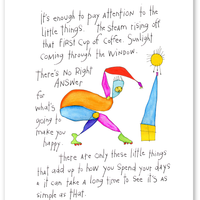 It's enough to pay attention to the
little things. the steam rising off
that first cup of coffee. Sunlight
coming through the window.
There's No Right
ANSWER
for
what's
going to
make you
happy.
There are only these little things
that add up to how you spend your days
& it can take a long time to see it's as
simple as that.